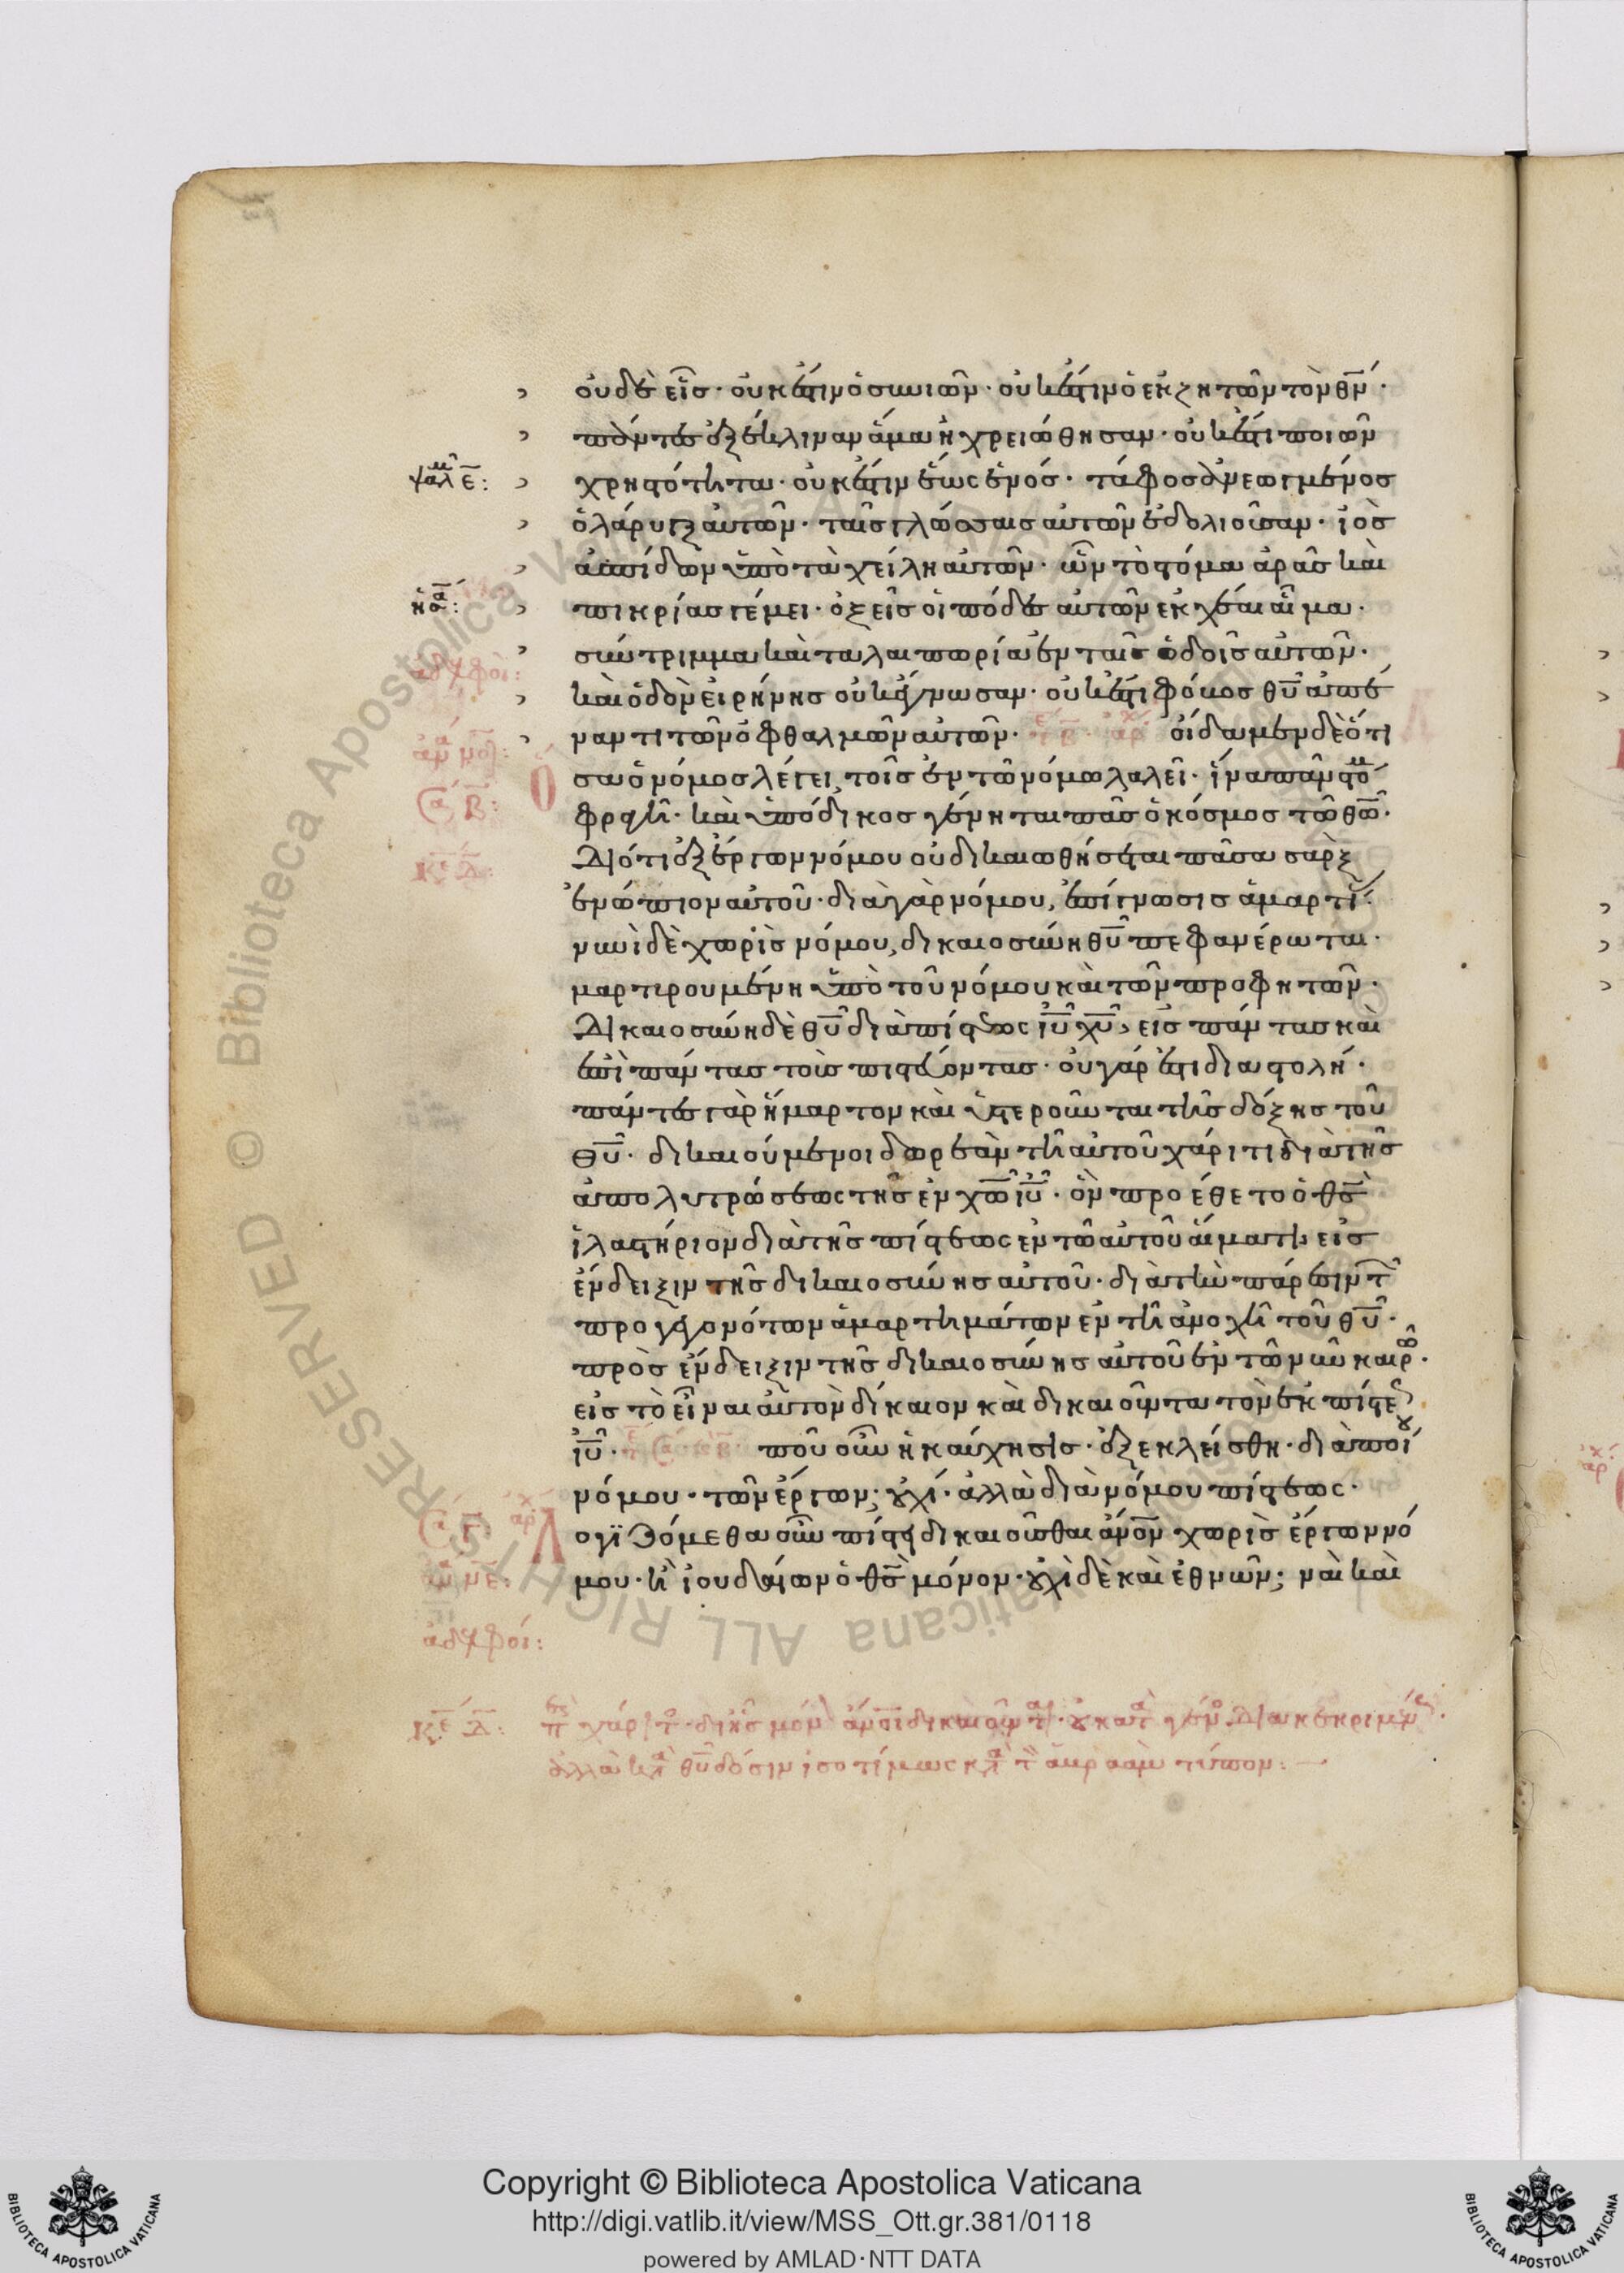 οὐδὲ εἷς· οὐκ ἔστιν ὁ συνιῶν· οὐκ ἔστιν ὁ ἐκζητῶν τὸν θν·
πάντες ἐξέκλιναν ἅμα ἠχρειώθησαν· οὐκ ἔστι ποιῶν
ψαλμ ε: χρηστότητα· οὐκ ἔστιν ἕως ἑνός· τάφος ἀνεωγμένος
ὁ λάρυγξ αὐτῶν· ταῖς γλώσσαις αὐτῶν ἐδολιοῦσαν· ἰὸς
ἀσπίδων ὑπὸ τὰ χείλη αὐτῶν· ὧν τὸ στόμα ἀρᾶς καὶ
ησα: πικρίας γέμει· ὀξεῖς οἱ πόδες αὐτῶν ἐκχέαι αἷμα·
σύντριμμα καὶ ταλαιπωρία ἐν ταῖς ὁδοῖς αὐτῶν·
ἀδελφοί:
καὶ ὁδὸν εἰρήνης οὐκ ἔγνωσαν· οὐκ ἔστι φόβος θυ ἀπέ
ναντι τῶν ὀφθαλμῶν αὐτῶν· οἴδαμεν δὲ ὅτι
Ο σα ὁ νόμος λέγει, τοῖς ἐν τῷ νόμῳ λαλεῖ· ἵνα πᾶν στόμ
φραγῇ· καὶ ὑπόδικος γένηται πᾶς ὁ κόσμος τῷ θω·
κε Δ: Διότι ἐξ ἔργων νόμου οὐ δικαιωθήσεται πᾶσα σὰρξ
ἐνώπιον αὐτοῦ· διὰ γὰρ νόμου, ἐπίγνωσις ἁμαρτί
νυνὶ δὲ χωρὶς νόμου, δικαιοσύνη θυ πεφανέρωται·
μαρτυρουμένη ὑπὸ τοῦ νόμου καὶ τῶν προφητῶν·
Δικαιοσύνη δὲ θυ διὰ πίστεως ιυ χυ, εἰς πάντας καὶ
ἐπὶ πάντας τοὺς πιστεύοντας· οὐ γάρ ἐστι διαστολή·
πάντες γὰρ ἥμαρτον καὶ ὑστεροῦνται τῆς δόξης τοῦ
θυ· δικαιούμενοι δωρεὰν τῇ αὐτοῦ χάριτι διὰ τῆς
ἀπολυτρώσεως τῆς ἐν χω ιυ· ὃν προέθετο ὁ θς
ἱλαστήριον διὰ τῆς πίστεως ἐν τῷ αὐτοῦ αἵματι, εἰς
ἔνδειξιν τῆς δικαιοσύνης αὐτοῦ· διὰ τὴν πάρεσιν τ
προγεγονότων ἁμαρτημάτων ἐν τῇ ἀνοχῇ τοῦ θυ·
πρὸς ἔνδειξιν τῆς δικαιοσύνης αὐτοῦ ἐν τῷ νῦν καιρῷ·
εἰς τὸ εἶναι αὐτὸν δίκαιον καὶ δικαιοῦντα τὸν ἐκ πίστε
ιυ· ποῦ οὖν ἡ καύχησις· ἐξεκλείσθη· διὰ ποίου
νόμου· τῶν ἔργων; οὐχί· ἀλλὰ διὰ νόμου πίστεως·
Λ ογιζόμεθα οὖν πίστει δικαιοῦσθαι ἄνον χωρὶς ἔργων νό
μου· ἢ ἰουδαίων ὁ θς μόνον· οὐχὶ δὲ καὶ ἐθνῶν; ναὶ καὶ
ἀδελφοί:
κε Δ:
ἀλλὰ κατὰ θυ δόσιν ἰσοτίμως κατὰ τ ἀβραὰμ τύπον:
Copyright © Biblioteca Apostolica Vaticana
http://digi.vatlib.it/view/MSS_Ott.gr.381/0118
powered by AMLAD·NTT DATA
BIBLIOTECA APOSTOLICA VATICANA
BIBLIOTECA APOSTOLICA VATICANA